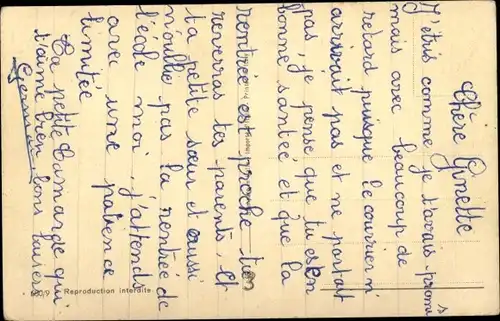 Chère Ginette
J'ecris comme je t'avais promis
mais avec beaucoup de
retard puisque le courrier n'
arrivait pas et ne partait
pas, je pense que tu es en
bonne santée et que la
rentrée est proche tu
reverras tes parents, et
ta petite sœur et aussi
n'oublie pas la rentrée de
l'école moi, j'attends
avec une patience
limitée
Ta petite Camarade qui
t'aime bien bons baisers
Reproduction interdite